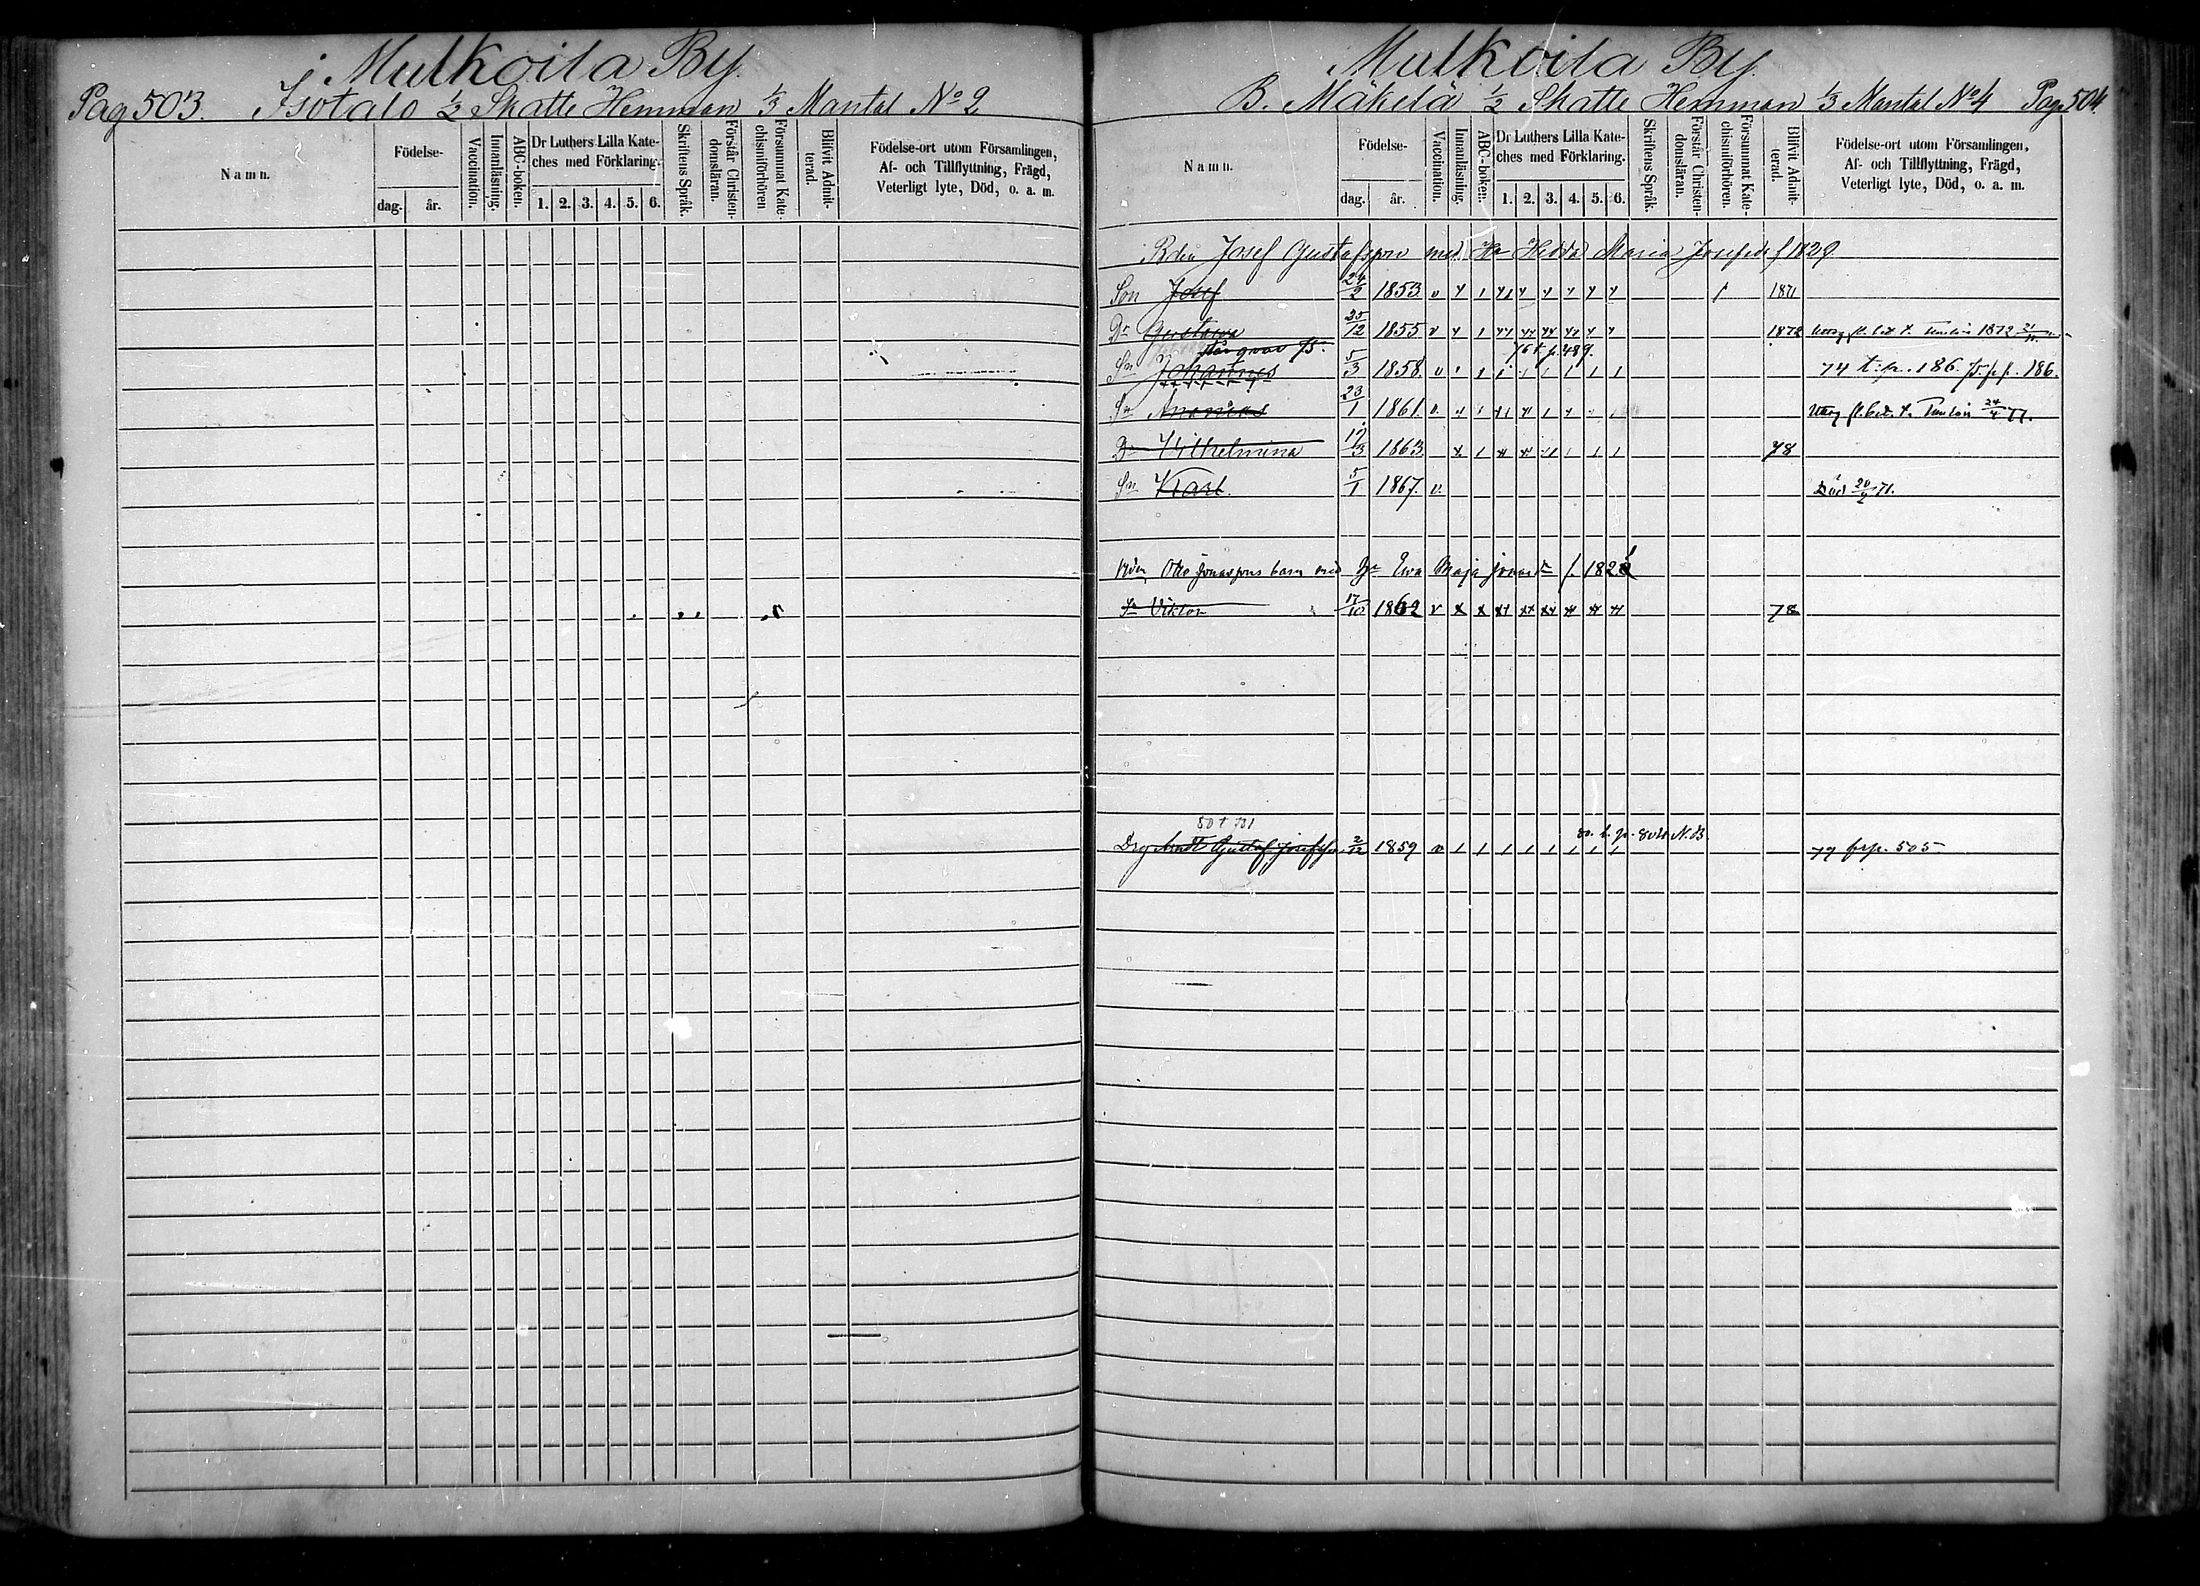 Mulkoila By.
Pag 503. Isotalo 1/2 Skatte Hemman 1/3 Mantal No 2
Namn.
Födelse-
dag. år.
Vaccination.
Innanläsning.
ABC-boken.
Dr Luthers Lilla Kate-
ches med Förklaring.
1. 2. 3. 4. 5. 6.
Skriftens Språk.
Förstår Christen-
domsläran.
Försummat Kate-
chismiförhören
Blifvit Admit-
terad.
Födelse-ort utom Församlingen,
Af- och Tillflyttning, Frägd,
Veterligt lyte, Död, o. a. m.
Mulkoila By.
B. Mäkelä 1/2 Skatte Hemman 1/3 Mantal No 4 Pag. 504.
Namn.
Födelse-
dag. år.
Vaccination.
Innanläsning.
ABC-boken.
Dr Luthers Lilla Kate-
ches med Förklaring.
1. 2. 3. 4. 5. 6.
Skriftens Språk.
Förstår Christen-
domsläran.
Försummat Kate-
chismiförhören.
Blifvit Admit-
terad.
Födelse-ort utom Församlingen,
Af- och Tillflyttning, Frägd,
Veterligt lyte, Död, o. a. m.
Josef Gustafsson med Hedda Maria f 1829
Son Josef 1853 v 1871
Dr Gustava 25/12 1855 v 1872 1872
76 t. p. 489.
Sn Johannes 5/3 1858. v 74 t. p. 186. p. 186.
Sn Ananias 23/1 1861. v
Dr Vilhelmina 17/3 1863 78
Sn Karl. 5/1 1867. v. Död 20/2 71.
Otto Jonassons barn med Eva Maja f. 182
Sn Viktor 17/10 1862 v 78
Gustaf Josefsson 2/12 1859 v N.B. 79 frp. 505